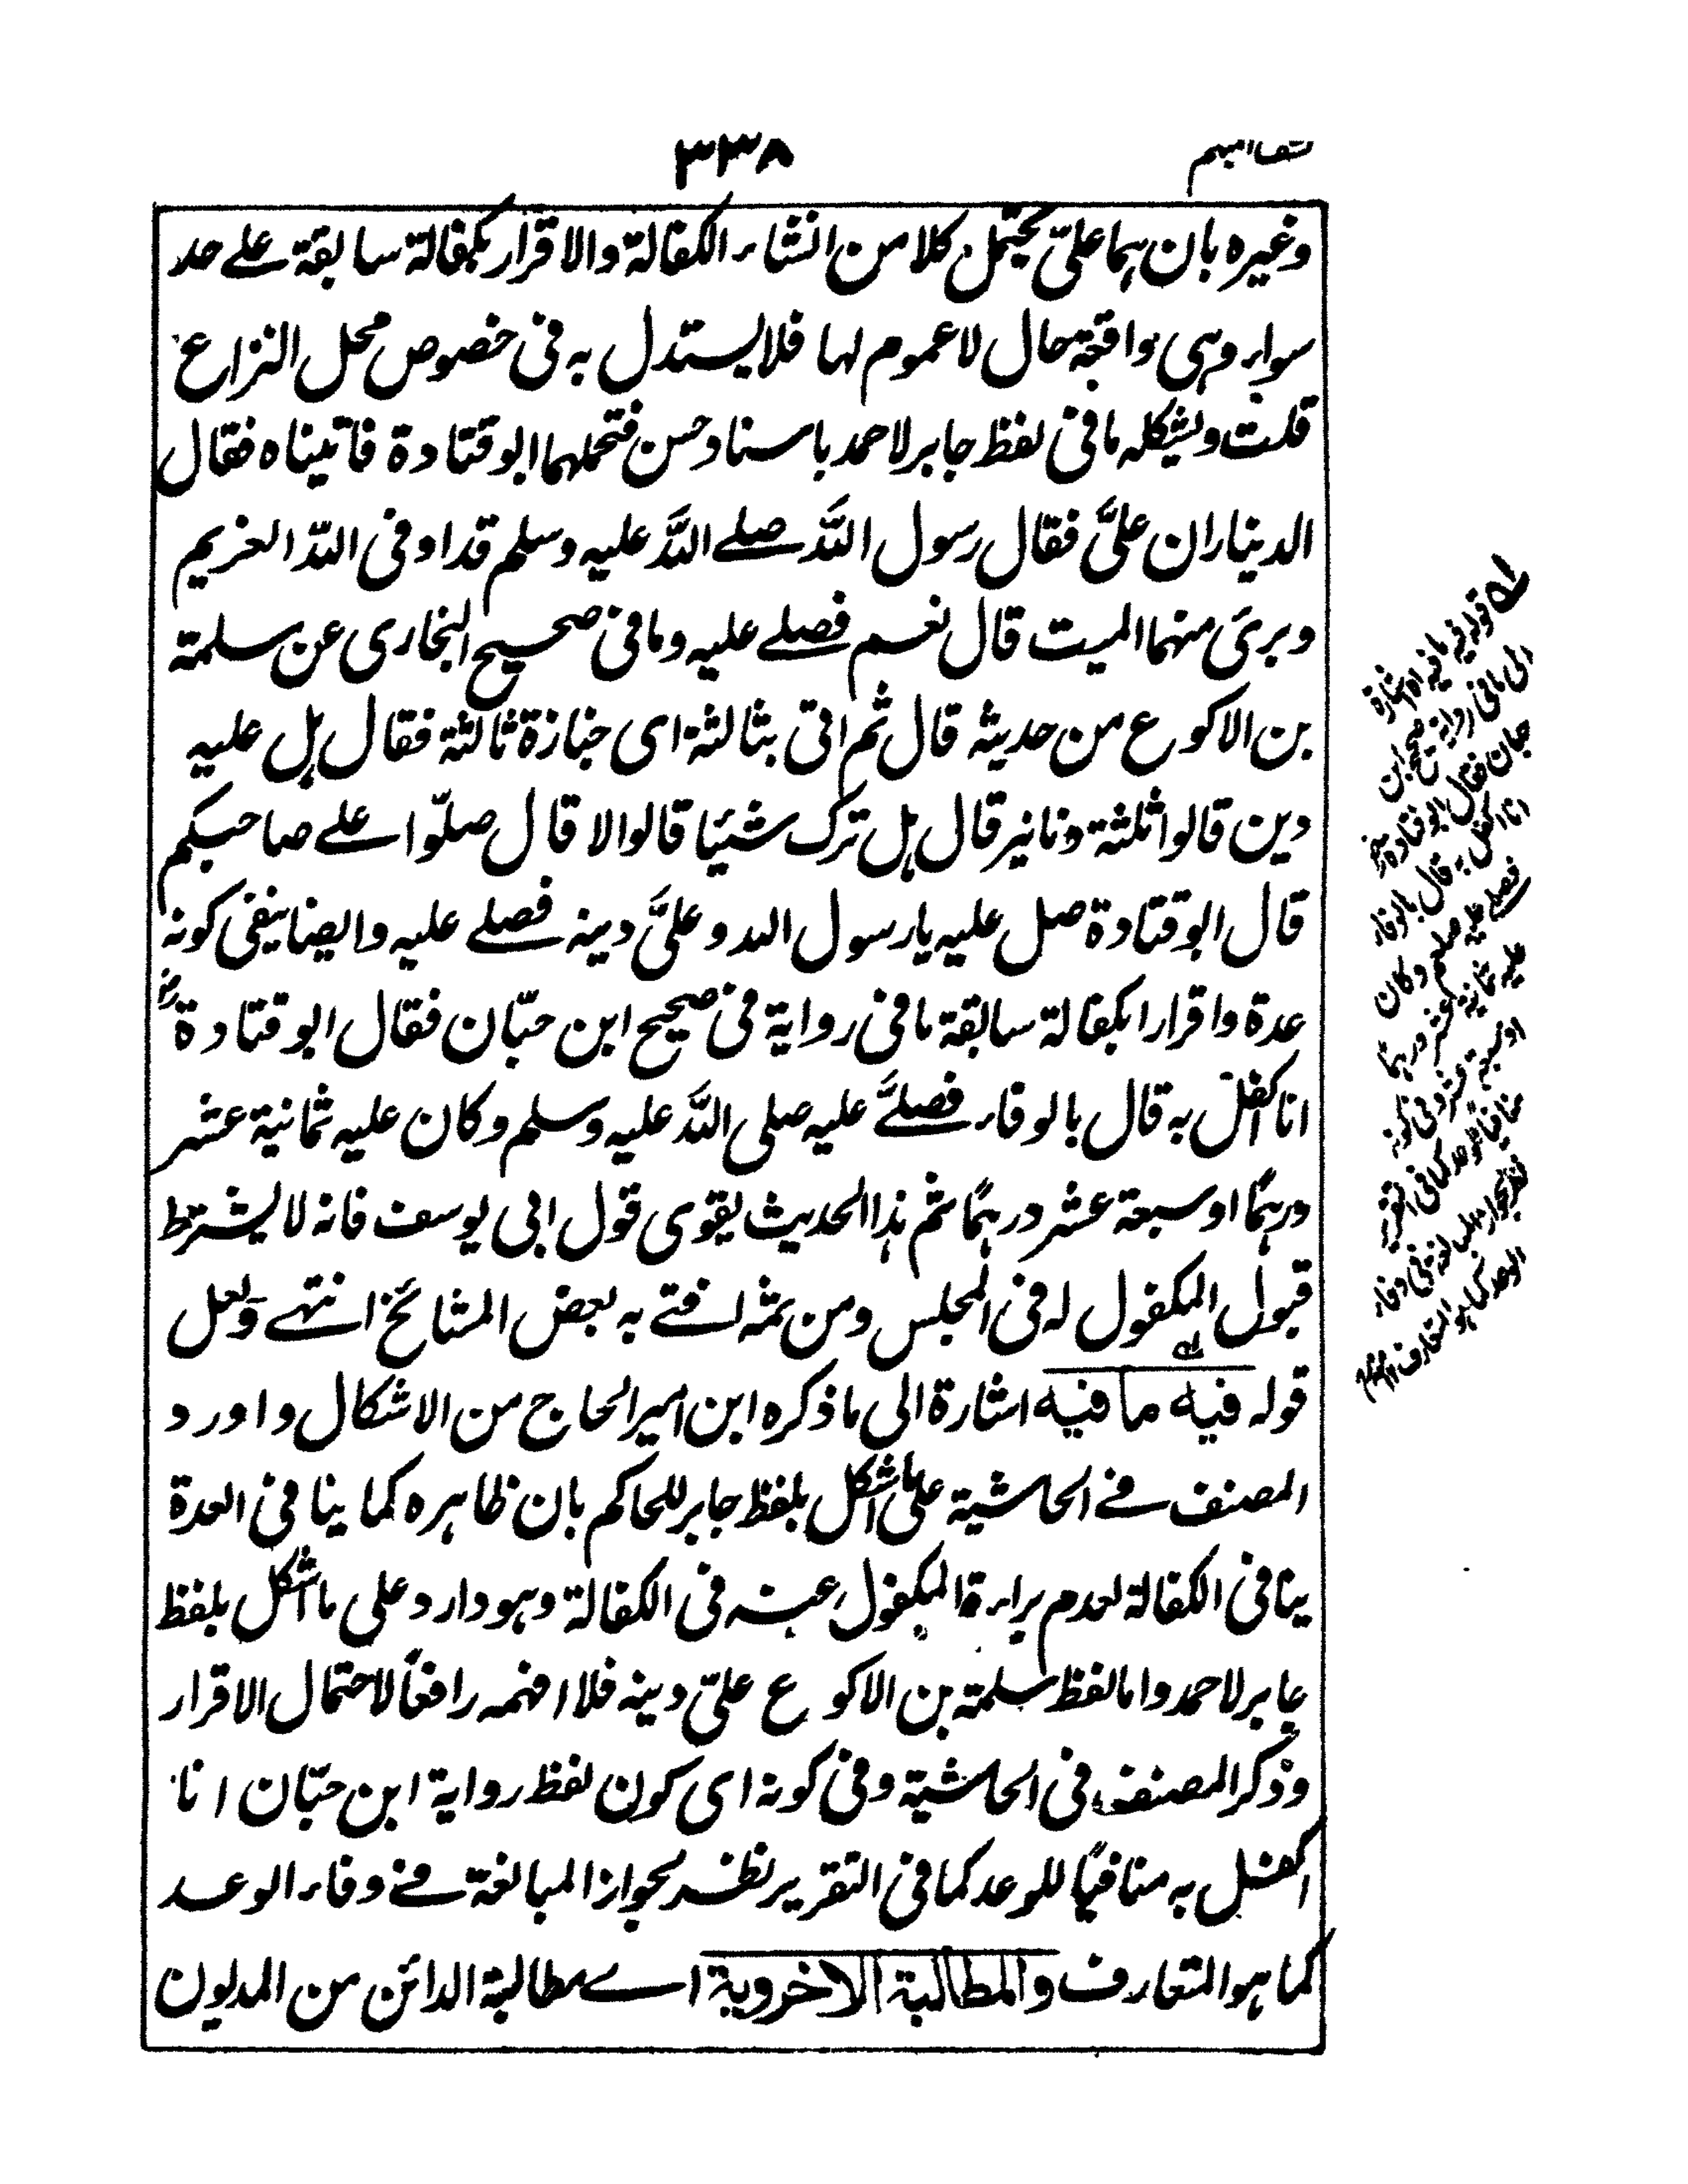 ٣٣٨
وغيره بان هما علىّ يحتمل كلا من انشاء الكفالة والاقرار بكفالة سابقة على حد
سواء وهى واقعة حال لا عموم لها فلا يستدل به فى خصوص محل النزاع
قلت ويشكله ما فى لفظ جابر لاحمد باسناد حسن فتحملهما ابو قتادة فاتيناه فقال
الديناران علىَّ فقال رسول اللّٰه صلى اللّٰه عليه وسلم قد اوفى اللّٰه الغريم
وبرئ منهما الميت قال نعم فصلى عليه وما فى صحيح البخارى عن سلمة
بن الاكوع من حديثه قال ثم اتى بثالثة اى جنازة ثالثة فقال هل عليه
دين قالوا ثلثة دنانير قال هل ترك شيئا قالوا لا قال صلّوا على صاحبكم
قال ابو قتادة صل عليه يا رسول الله وعلىَّ دينه فصلى عليه وايضا ينفى كونه
عدة واقرارا بكفالة سابقة ما فى رواية فى صحيح ابن حبّان فقال ابو قتادة رض
انا اكفل به قال بالوفاء فصلىَّ عليه صلى اللّٰه عليه وسلم وكان عليه ثمانية عشر
درهمًا او سبعة عشر درهمًا ثم هذا الحديث يقوى قول ابى يوسف فانه لا يشترط
قبول المكفول له فى المجلس ومن ثمه افتى به بعض المشائخ انتهى ولعل
قوله فيه ما فيه اشارة الى ما ذكره ابن امير الحاج من الاشكال واورد
المصنف فى الحاشية على ما اشكل بلفظ جابر للحاكم بان ظاهره كما ينافى العدة
ينافى الكفالة لعدم براءة المكفول عنه فى الكفالة وهو وارد على ما اشكل بلفظ
جابر لاحمد واما لفظ سلمة بن الاكوع علىّ دينه فلا افهمه رافعًا لاحتمال الاقرار
وذكر المصنف فى الحاشية وفى كونه اى كون لفظ رواية ابن حبّان انا
اكفل به منافيًا للوعد كما فى التقرير نظر لجواز المبالغة فى وفاء الوعد
كما هو المتعارف والمطالبة الاخروية اى مطالبة الدائن من المديون
له قوله فيه ما فيه اه اشارة
الى ما فى رواية صحيح ابن
حبان فقال ابو قتادة رض
انا اكفل به قال بالوفاء
فصلى عليه صلعم وكان
عليه ثمانية عشر درهما
او سبعة عشر وفى كونه
منافيا للوعد كما فى التقرير
نظر لجواز المبالغة فى وفاء
الوعد كما هو المتعارف ١٢ منه